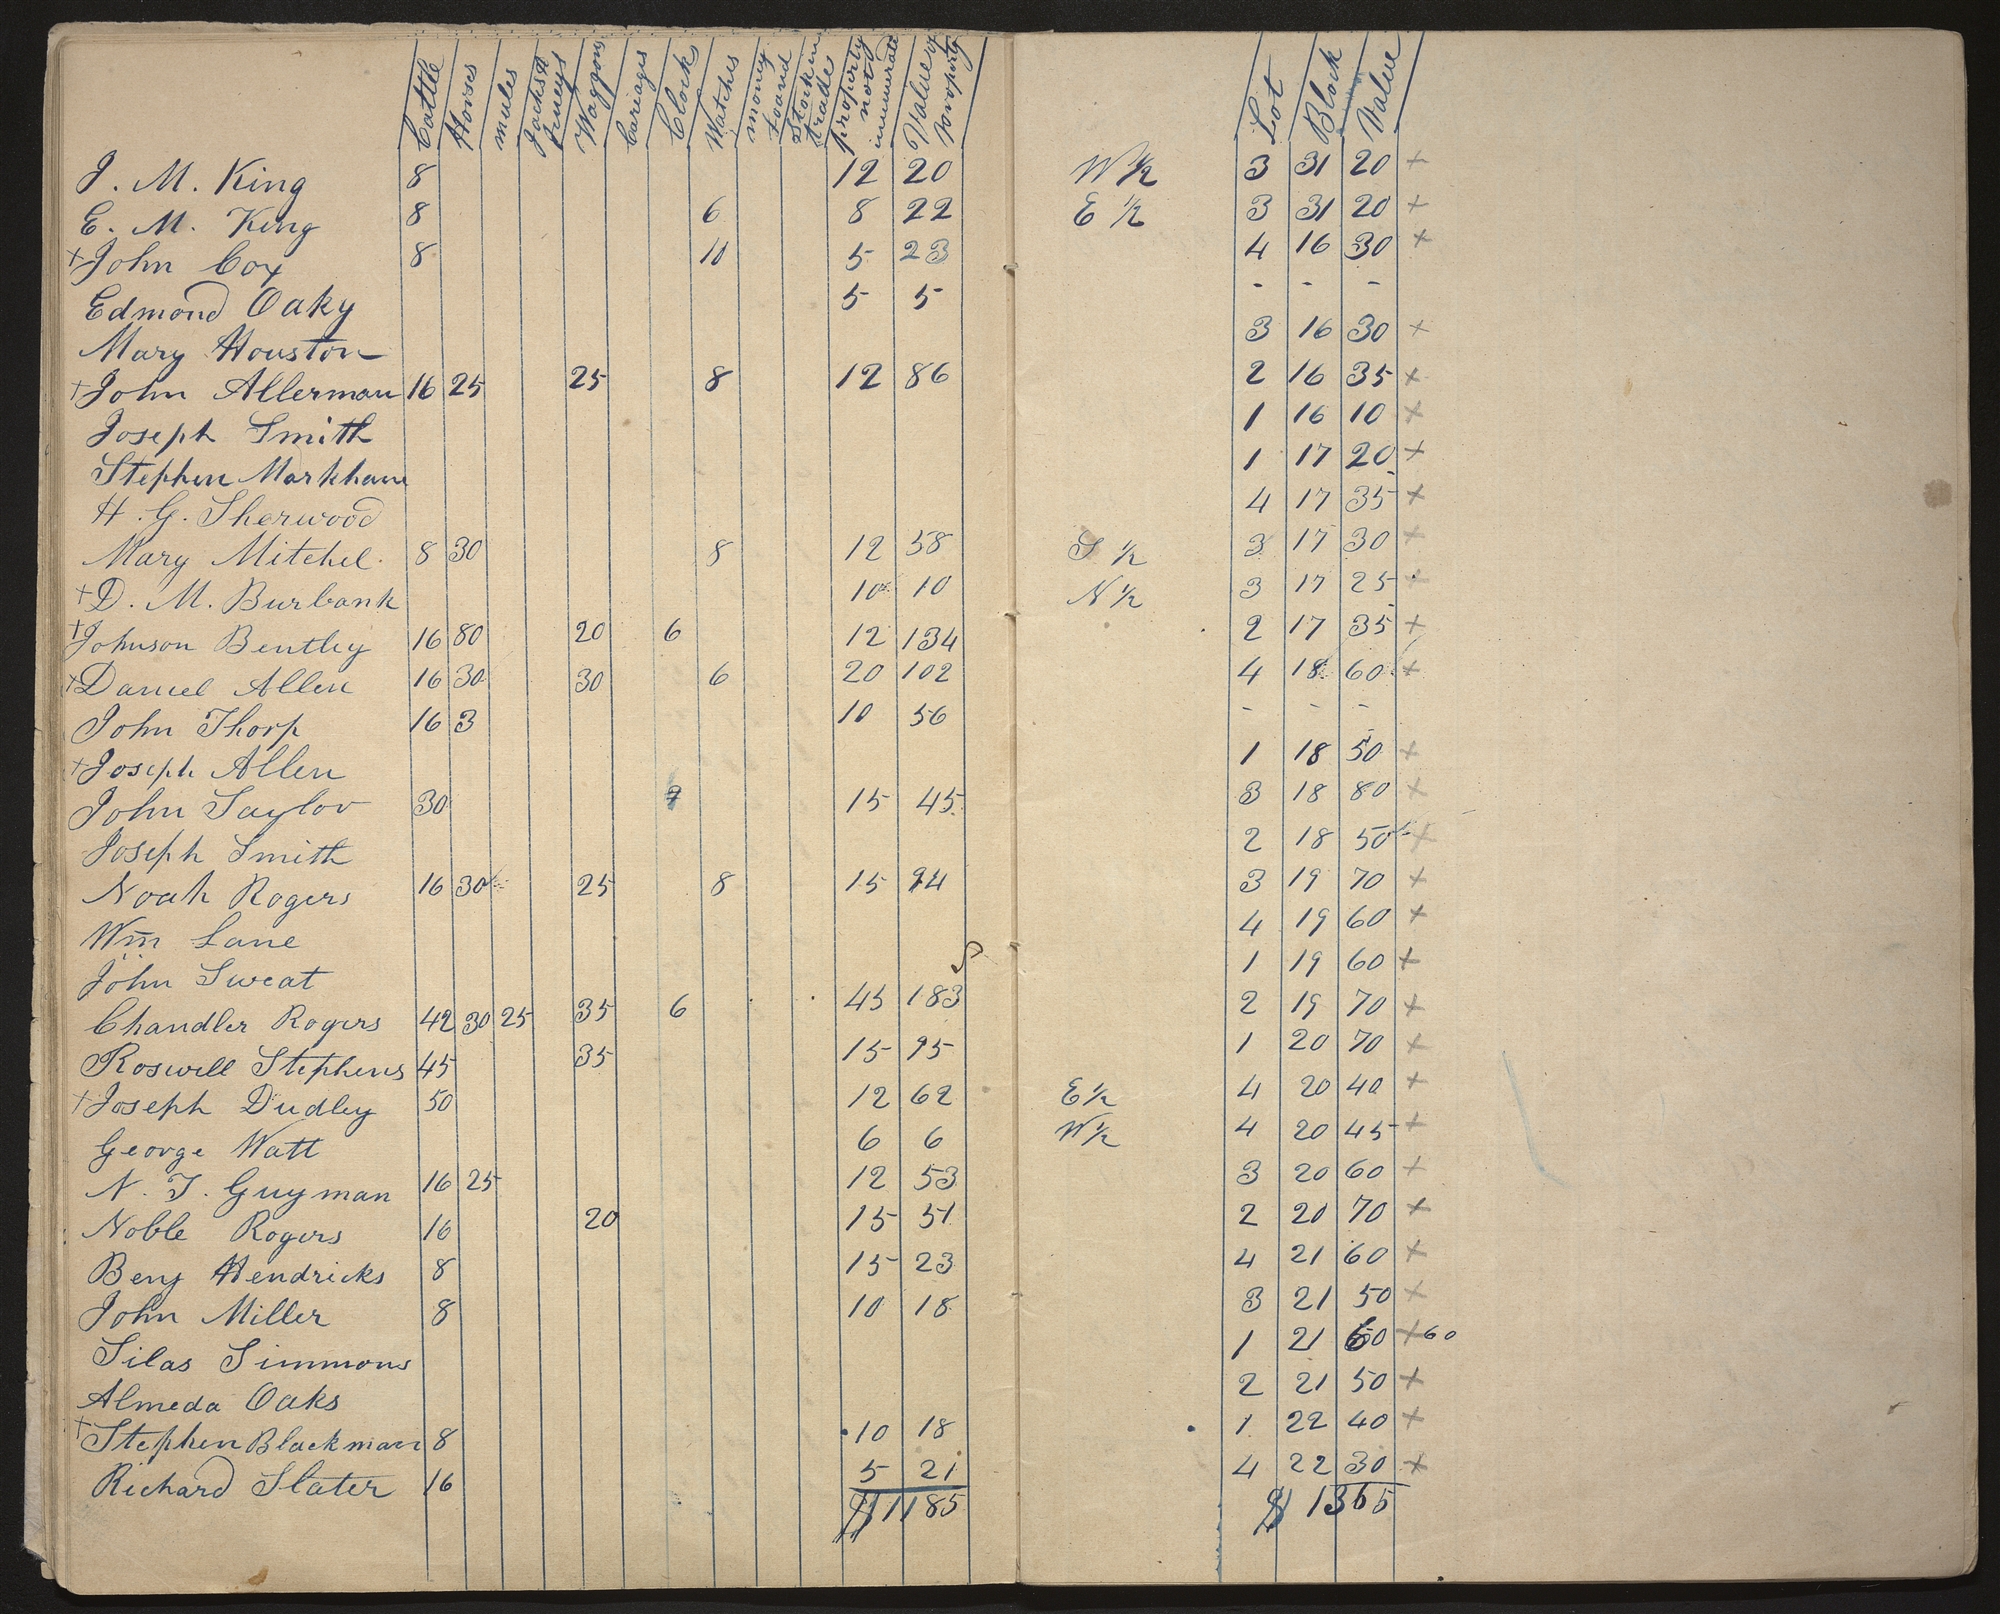 Cattle Horses mules Jacks & Jineys Waggons Cariages Clock Watches money loand Stock in trades property not inumurated Value of property Lot Block Value
J. M. King 8 12 20 W 1/2 3 31 20 +
E. M. King 8 6 8 22 E 1/2 3 31 20 +
+ John Cox 8 10 5 23 4 16 30 +
Edmond Oaky 5 5 - - -
Mary Houston 3 16 30 +
+ John Allerman 16 25 25 8 12 86 2 16 35 +
Joseph Smith 1 16 10 +
Stephen Markham 1 17 20 +
H. G. Sherwood 4 17 35 +
Mary Mitchel. 8 30 8 12 58 S 1/2 3 17 30 +
+ D. M. Burbank 10 10 N 1/2 3 17 25 +
+ Johnson Bentley 16 80 20 6 12 134 2 17 35 +
+ Daniel Allen 16 30 30 6 20 102 4 18 60 +
John Thorp 16 3 10 56 - - -
+ Joseph Allen 1 18 50 +
John Taylor 30 15 45 3 18 80 +
Joseph Smith 2 18 50 +
Noah Rogers 16 30 25 8 15 94 3 19 70 +
Wm Lane 4 19 60 +
John Sweat 1 19 60 +
Chandler Rogers 42 30 25 35 6 45 183 2 19 70 +
Roswell Stephens 45 35 15 95 1 20 70 +
+ Joseph Dudley 50 12 62 E 1/2 4 20 40 +
George Watt 6 6 W 1/2 4 20 45 +
N. T. Guyman 16 25 12 53 3 20 60 +
Noble Rogers 16 20 15 51 2 20 70 +
Benj Hendricks 8 15 23 4 21 60 +
John Miller 8 10 18 3 21 50 +
Silas Simmons 1 21 60 + 60
Almeda Oaks 2 21 50 +
+ Stephen Blackman 8 10 18 1 22 40 +
Richard Slater 16 5 21 4 22 30 +
$1185 $1365